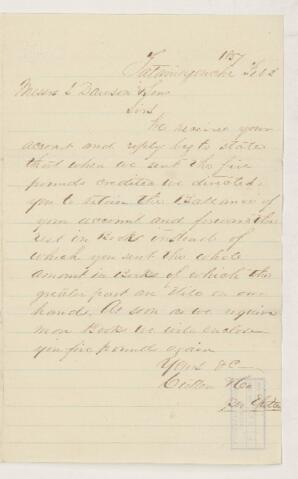 1857
Tatamagouche Feb 2
Messrs J Dawson & Sons
Sirs
We received your
account and reply beg to state
that when we sent the five
pounds credited we directed
you to retain the Ballance of
your account and forward the
rest in Books instead of
which you sent the whole
amount in Books of which the
greater part are still on our
hands. As soon as we require
more Books we will enclose
you five pounds again
Yours &C
& Co
per